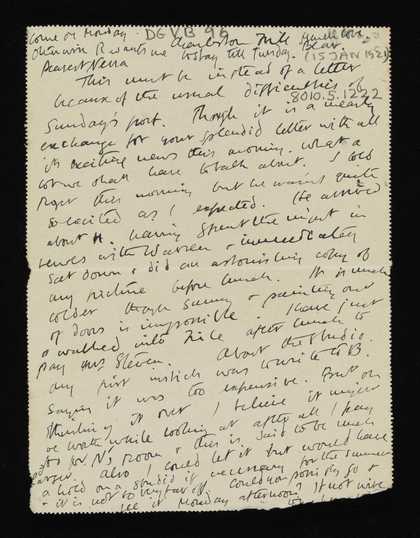 come on Monday. DGVB 96
Otherwise R wants me to stay till Tuesday. Bear.
Charleston Firle Much love
(15 JAN 1921)
Dearest Nessa
This must be instead of a letter
8010.5.1222
because of the usual difficulties of
Sunday's post. Though it is a weedy
exchange for your splendid letter with all
its exciting news this morning. What a
lot we shall have to talk about. I told
Roger this morning but he wasn't quite
so excited as I expected. He arrived
about 11. having spent the night in
Lewes with Warren & immediately
sat down & did an astonishing copy of
my picture before lunch. It is much
colder though sunny & painting out
of doors is impossible. I have just
walked into Firle after lunch to
pay Mrs Stevens. About the studio.
my first instinct was to write to B.
saying it was too expensive. But on
thinking it over I believe it might
be worth while looking at after all I pay
for N's room & this is said to be much
larger. Also I could let it but would have
a hold on a studio if necessary for the summer
& it is not so very far off. Could you possibly go &
see it Monday afternoon? If not wire